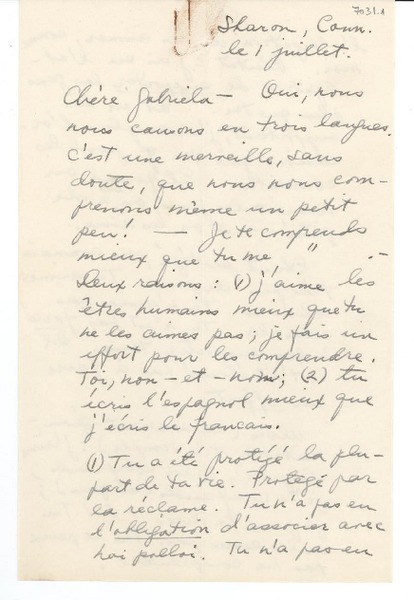 7031.1
Sharon, Conn.
le 1 juillet.
Chére Gabriela — Oui, nous
nous causons en trois langues.
C'est une merveille, sans
doute, que nous nous com-
prenons même un petit
peu! — Je te comprends
mieux que tu me " .—
Deux raisons: (1) j'aime les
êtres humains mieux que tu
ne les aimes pas; je fais un
effort pour les comprendre.
Toi, non-et-nom; (2) tu
écris l'espagnol mieux que
j'écris le francais.
(1) Tu a été protigé la plu-
part de ta vie. Protegé par
la réclame. Tu n'a pas eu
l'obligation d'associer avec
hoi polloi. Tu n'a pas eu